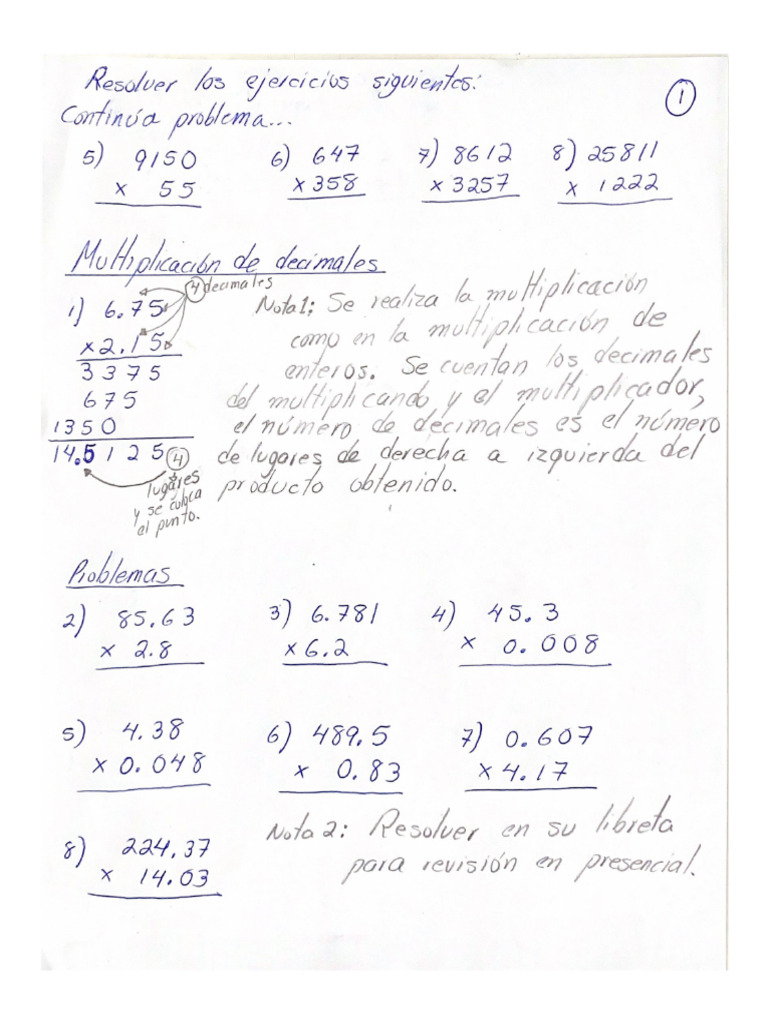 Resolver los ejercicios siguientes:
1
Continúa problema...
5) 9150 6) 647 7) 8612 8) 25811
x 55 x358 x3257 x 1222
Multiplicación de decimales
4 decimales
1) 6.75
x2.15
3375
675
1350
14.5125 4
lugares
y se coloca
el punto.
Nota1: Se realiza la multiplicación
como en la multiplicación de
enteros. Se cuentan los decimales
del multiplicando y el multiplicador,
el número de decimales es el número
de lugares de derecha a izquierda del
producto obtenido.
Problemas
2) 85.63 3) 6.781 4) 45.3
x 2.8 x6.2 x 0.008
5) 4.38 6) 489.5 7) 0.607
x 0.048 x 0.83 x4.17
8) 224.37
x 14.03
Nota 2: Resolver en su libreta
para revisión en presencial.